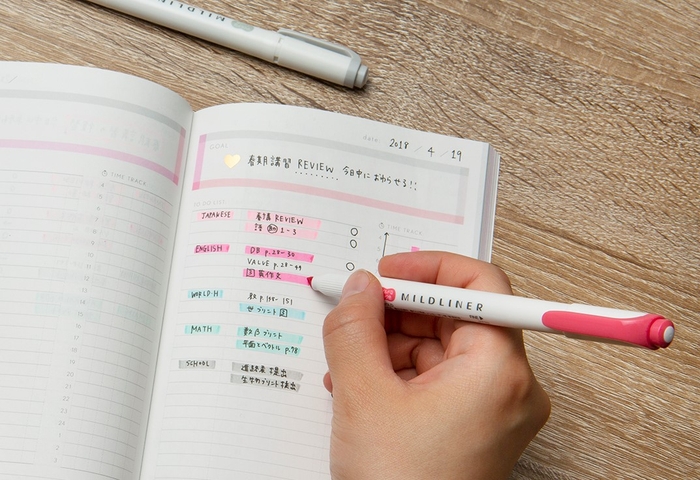 MILDLINER
DATE 2018 / 4 / 19
GOAL
春期講習 REVIEW 今日中におわらせる!!
TIME TRACK
TO DO LIST
TIME TRACK
JAPANESE 春講 REVIEW
1-3
ENGLISH DB p.28-30
VALUE p.28-44
英作文
WORLD H p.148-151
プリント
MATH 数Bプリント
平面ベクトル p.98
SCHOOL 進路表提出
プリント提出
MILDLINER